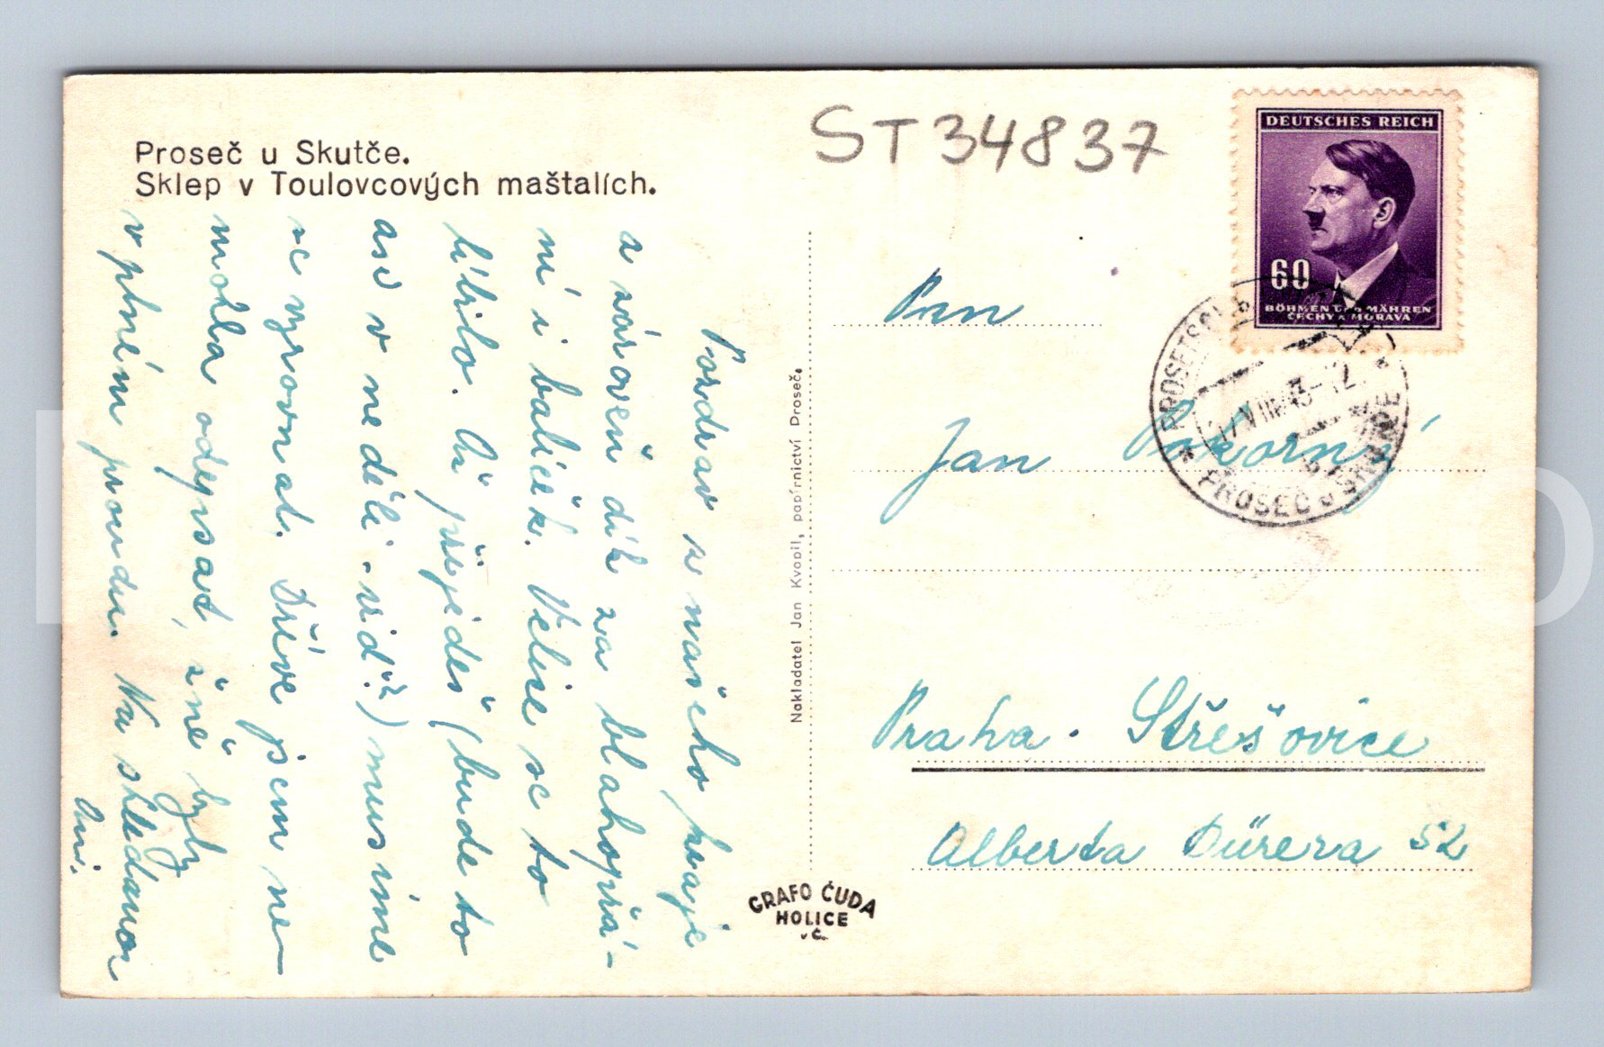 Proseč u Skutče.
Sklep v Toulovcových maštalích.
ST34837
DEUTSCHES REICH
60
BÖHMEN UND MÄHREN
ČECHY A MORAVA
17 VIII 43-12
PROSEČ u SKUTČE
Pozdrav z našeho kraje
a zároveň dík za blahopřá-
ní i balíček. Velice se to
líbilo. Až přijedeš (bude to
asi v neděli - viď?) musíme
se vyrovnat. Dříve jsem ne-
mohla odepsat, žně byly
v plném proudu. Na shledanou
Nakladatel Jan Kvapil, papírnictví Proseč.
GRAFO ČUDA
HOLICE
v Č.
Pan
Jan Pokorný
Praha - Střešovice
Alberta Dürera 52